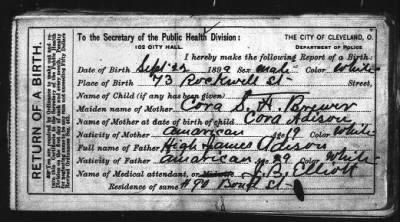 To the Secretary of the Public Health Division: THE CITY OF CLEVELAND, O.
102 CITY HALL. DEPARTMENT OF POLICE
I hereby make the following Report of a Birth:
Date of Birth Sept 22 1899 Sex male Color White
Place of Birth 73 Rockwell St Street,
Name of Child (if any has been given)
Maiden name of Mother Cora S. H. Brewer
Name of Mother at date of birth of child Cora Adison
Nativity of Mother amarican 19 Color White
Full name of Father High James Adison
Nativity of Father amarican 29 Color White
Name of Medical attendant, or Midwife J. B. Elliott
Residence of same # 90 St
RETURN OF A BIRTH.